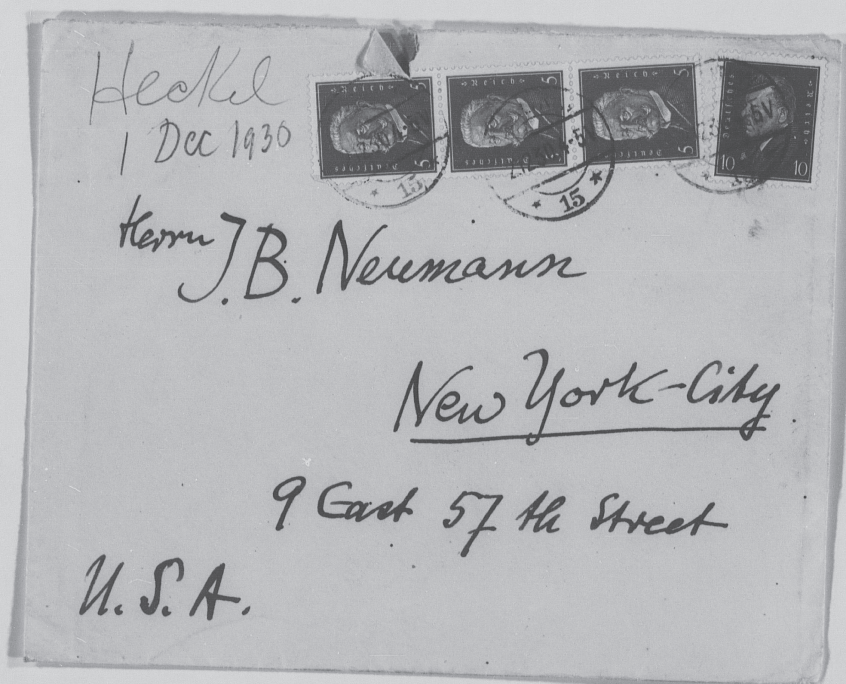 Heckel
1 Dec 1930
5 Deutsches Reich 5
5 Deutsches Reich 5
5 Deutsches Reich 5
10 Deutsches Reich 10
* 15 *
* 15 *
Herrn J. B. Neumann
New York-City
9 East 57 th Street
U. S. A.